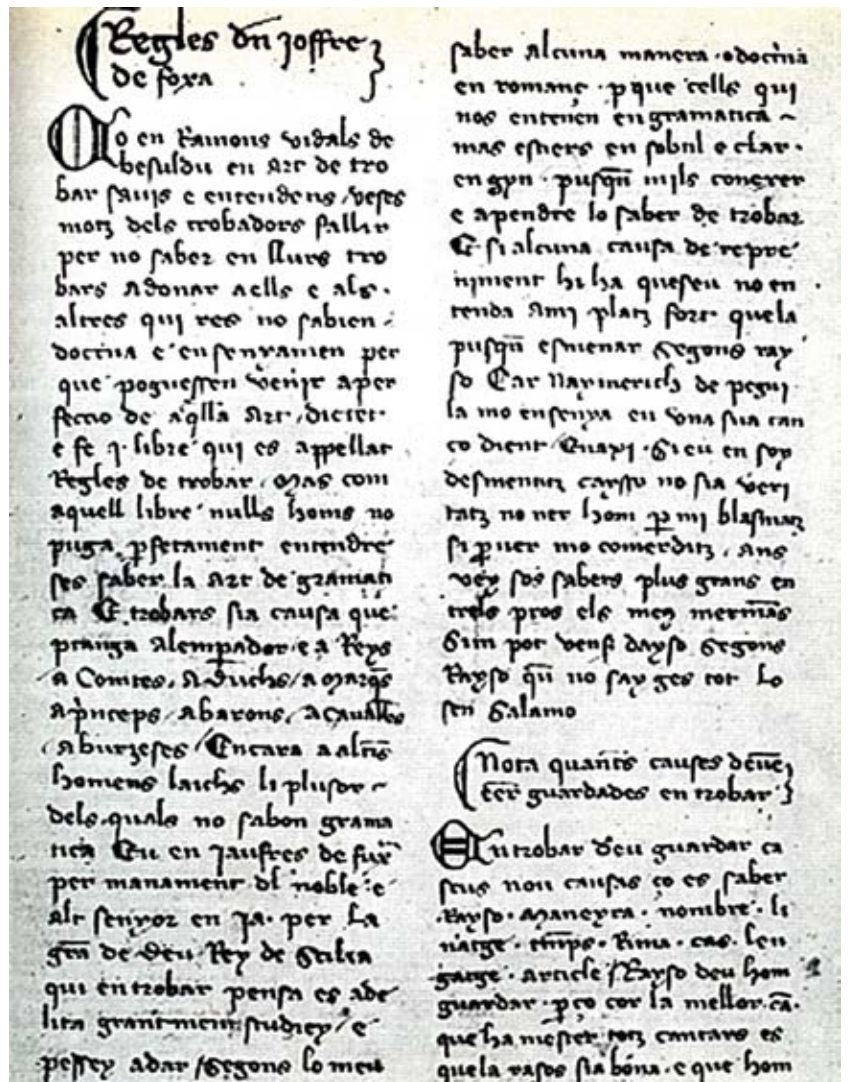 Regles dn Joffre
de foxa
Io en Ramons vidals de
besuldu en Art de tro
bar sauis e entendens, veses
motz dels trobadors fallir
per no saber en llurs tro
bars adonar aells e als
altres qui res no sabien
doctrina e ensenyamen per
que poguessen venir aper
feccio de aqlla Art, dictet
e fe .j. libre qui es appellat
Regles de trobar, Mas com
aquell libre nulls homs no
puga pfetament entendre
ses saber la Art de gramati
ca E trobars sia causa que
pranga Alempador e a Reys
a Comtes, A Duchs, a Marqs
a pnceps, abarons, acaualls
aburzeses, Encara a altrs
homens laichs li plusor
dels quals no sabon grama
tica Eu en Jaufres de fux
per manament dl noble e
alt senyor en Ja. per la
gra de deu Rey de Sicilia
qui en trobar pensa es ade
lita grantment studiey, e
pessey adar, segons lo meu
saber alcuna manera o doctrina
en romanç p que cells qui
nos entenen en gramatica
mas esters en sobtil e clar
engyn pusqn mils conexer
e apendre lo saber de trobar
E si alcuna causa de repre
niment hi ha queseu no en
tenda Ami platz fort quela
pusqn esmenar segons ray
so Car Naymerich de pegui
la mo ensenya en vna sua can
ço dient Quaxi Sieu en soy
desmentitz caysso no sia veri
tatz no ner hom p mi blasmatz
si puer mo
vey sos sabers plus grans en
trels pros els meus
Sim pot vensser dayso segons
Rayso qu no say ges tot lo
sen Salamo
Nota quantes causes deuen
esser guardades en trobar
En trobar deu guardar ca
scus nou causas ço es saber
Rayso. Maneyra. nombre. li
natge. temps. Rima. cas. len
gatge. article, Rayso deu hom
guardar pço cor la mellor ca
que ha mester totz cantars es
quela rasos sia bona e que hom